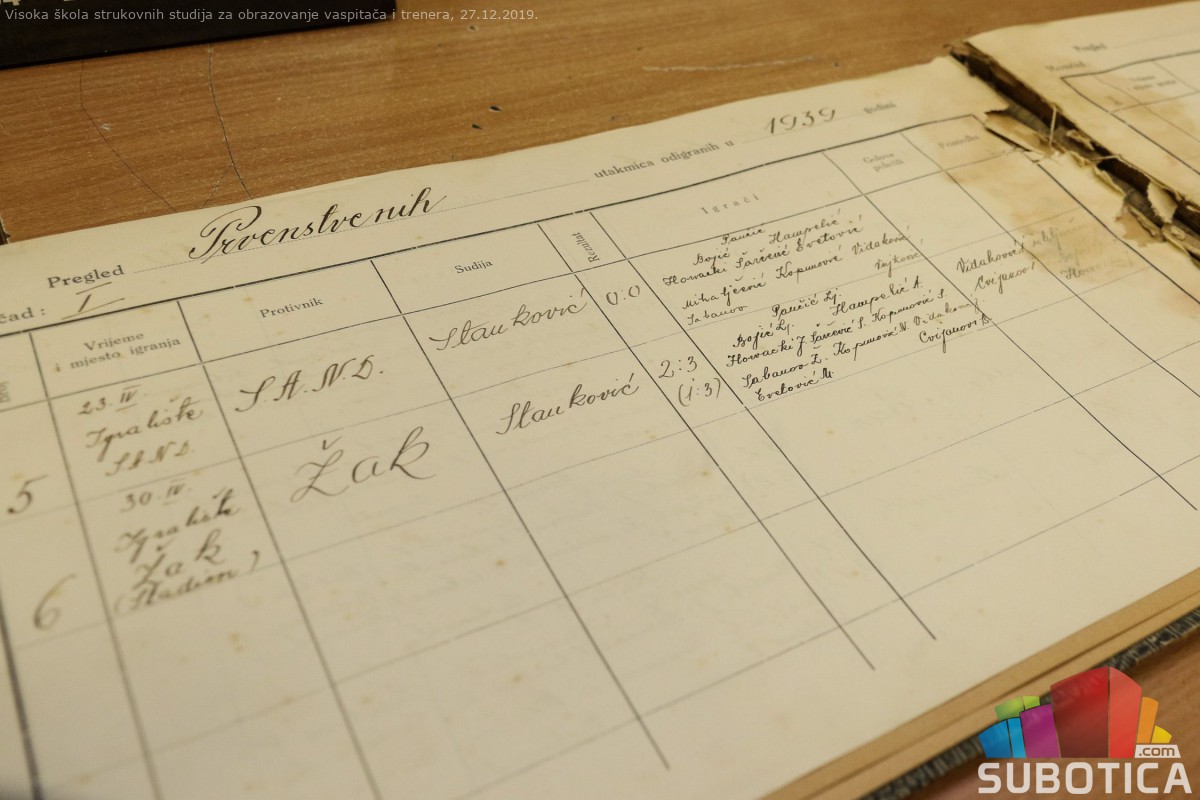 Visoka škola strukovnih studija za obrazovanje vaspitača i trenera, 27.12.2019.
Pregled Prvenstvenih utakmica odigranih u 1939 godini
čad: I
Broj
Vrijeme
i mjesto igranja
Protivnik
Sudija
Rezultat
Igrači
Golove
postigli
Primjedba
5
23. IV.
Igralište
S.A.N.D.
S.A.N.D.
Stanković
0:0
Pančić
Bojić Hampelić
Horvacki Šarčević Evetović
Kopunović Vidaković
Vujković
Šabanov
6
30. IV.
Igralište
Žak
(Stadion)
Žak
Stanković
2:3
(1:3)
Pančić Lj.
Bojić Lj. Hampelić A.
Horvacki J. Šarčević S. Kopunović S.
Šabanov Ž. Kopunović N. Vidaković J.
Evetović M. Cvijanov B.
Vidaković
Cvijanov 1
Pregled
SUBOTICA
.com